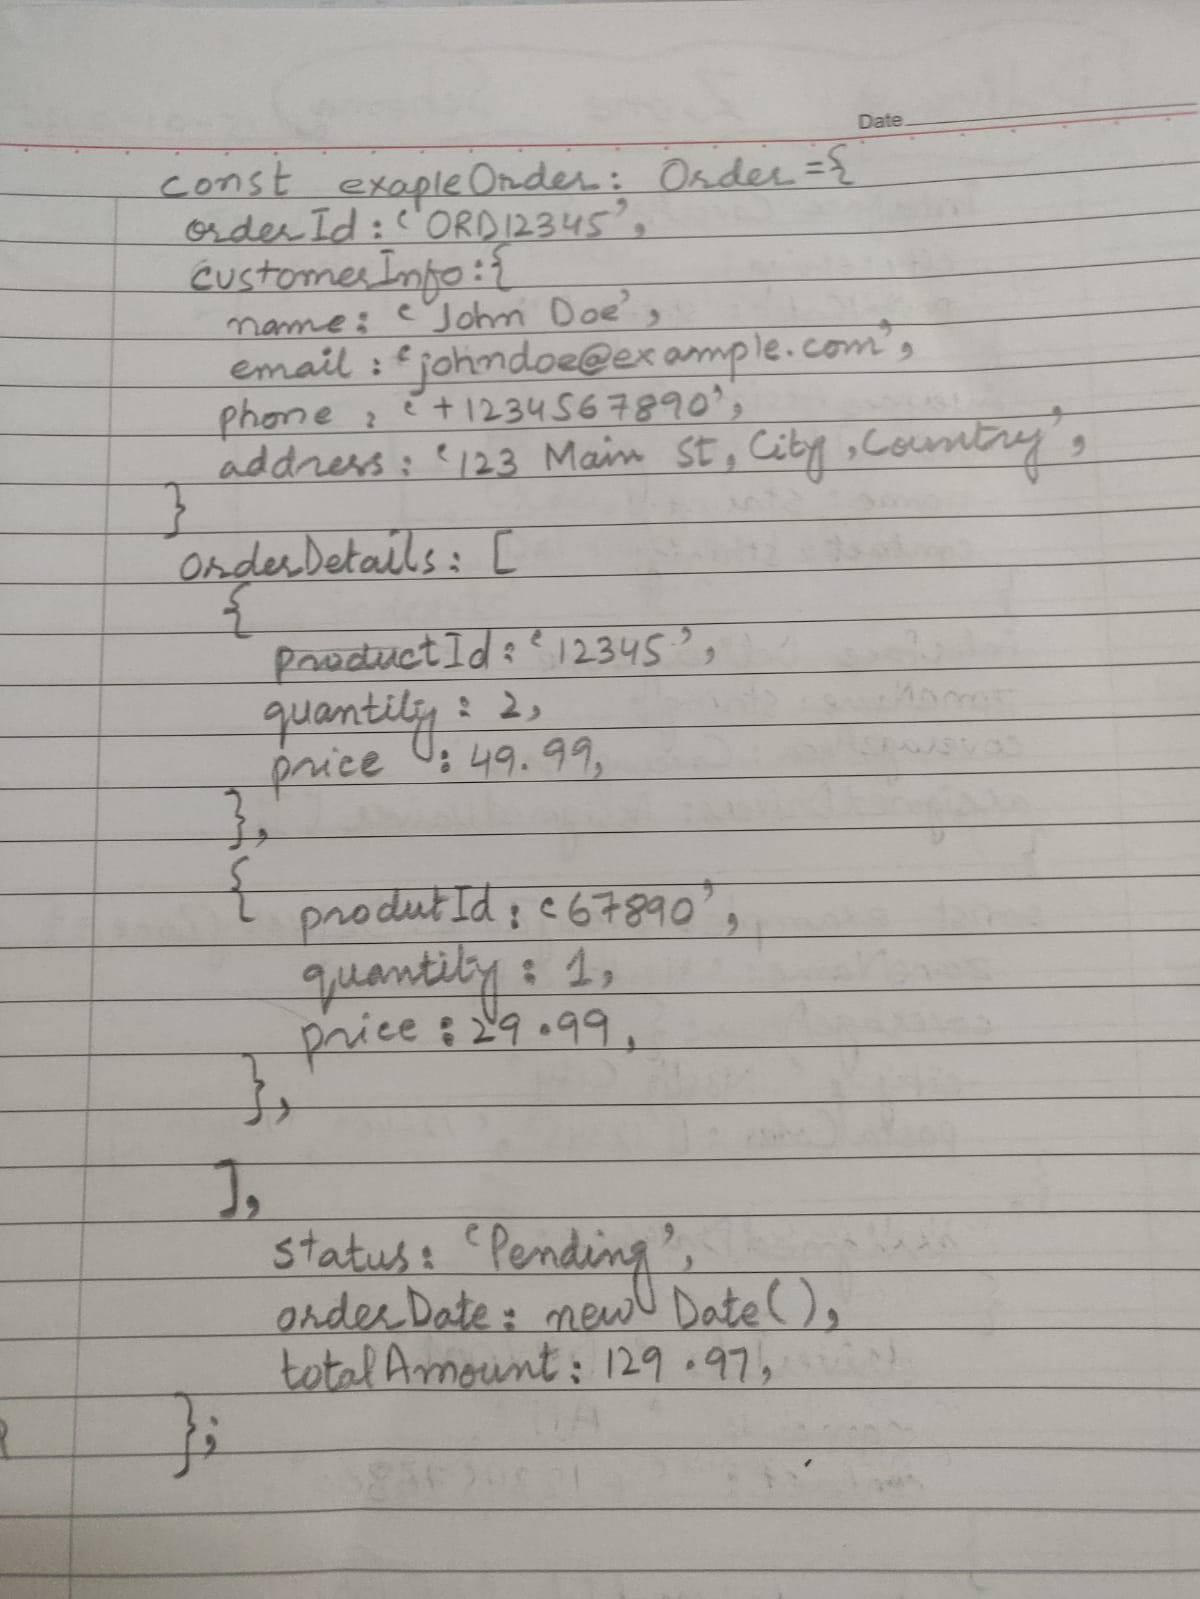 Date
const exapleOrder: Order={
orderId: 'ORD12345',
customerInfo:{
name: 'John Doe',
email: 'johndoe@example.com',
phone : '+1234567890',
address: '123 Main St, City, Country',
}
orderDetails: [
{
productId: '12345',
quantity: 2,
price : 49.99,
},
{ produtId: '67890',
quantity: 1,
price: 29.99,
},
],
status: 'Pending',
orderDate: new Date(),
totalAmount: 129.97,
};